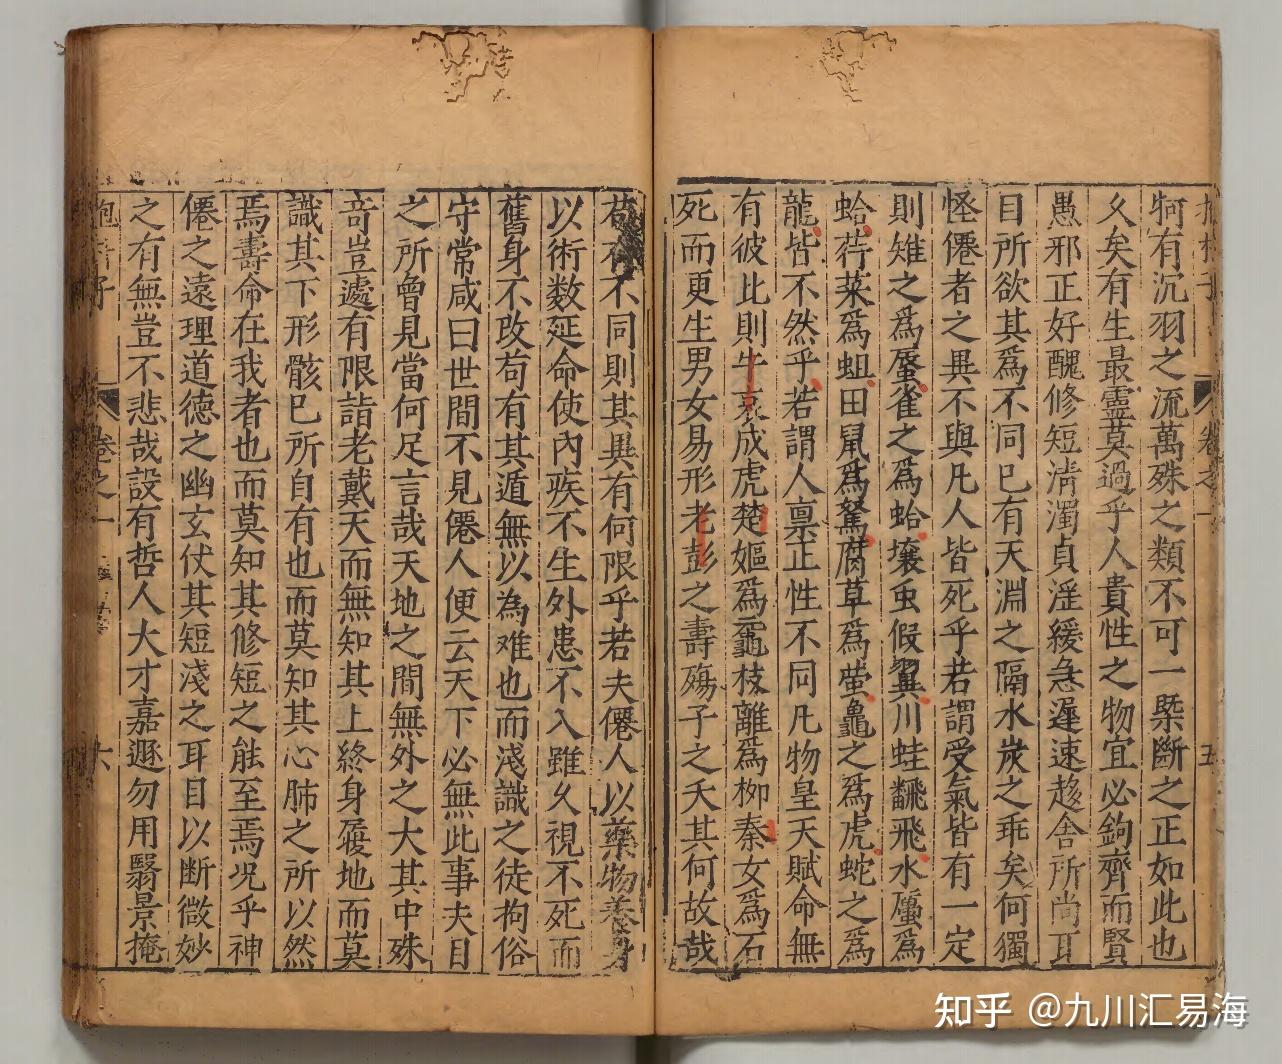 抱朴子 卷之一 五
牱有沉羽之流萬殊之類不可一槩斷之正如此也
乆矣有生最靈莫過乎人貴性之物宜必鈞齊而賢
愚邪正好醜修短淸濁貞淫緩急遲速趍舍所尚耳
目所欲其爲不同巳有天淵之隔水炭之乖矣何獨
怪僊者之異不與凡人皆死乎若謂受氣皆有一定
則雉之爲蜃雀之爲蛤壤虫假翼川蛙飜飛水蠣爲
蛤荇萊爲蛆田鼠爲駕腐草爲螢鼉之爲虎蛇之爲
龍皆不然乎若謂人禀正性不同凡物皇天賦命無
有彼此則牛哀成虎楚嫗爲黿枝離爲柳秦女爲石
死而更生男女易形老彭之壽殤子之夭其何故哉
苟有不同則其異有何限乎若夫僊人以藥物養身
以術数延命使內疾不生外患不入雖乆視不死而
舊身不改苟有其道無以為难也而淺識之徒拘俗
守常咸曰世間不見僊人便云天下必無此事夫目
之所曾見當何足言哉天地之間無外之大其中殊
竒豈遽有限詣老戴天而無知其上終身履地而莫
識其下形骸巳所自有也而莫知其心肺之所以然
焉壽命在我者也而莫知其修短之能至焉况乎神
僊之遠理道德之幽玄仗其短淺之耳目以断微妙
之有無豈不悲哉設有哲人大才嘉遯勿用翳景掩
抱朴子 卷之一 六
知乎 @九川汇易海